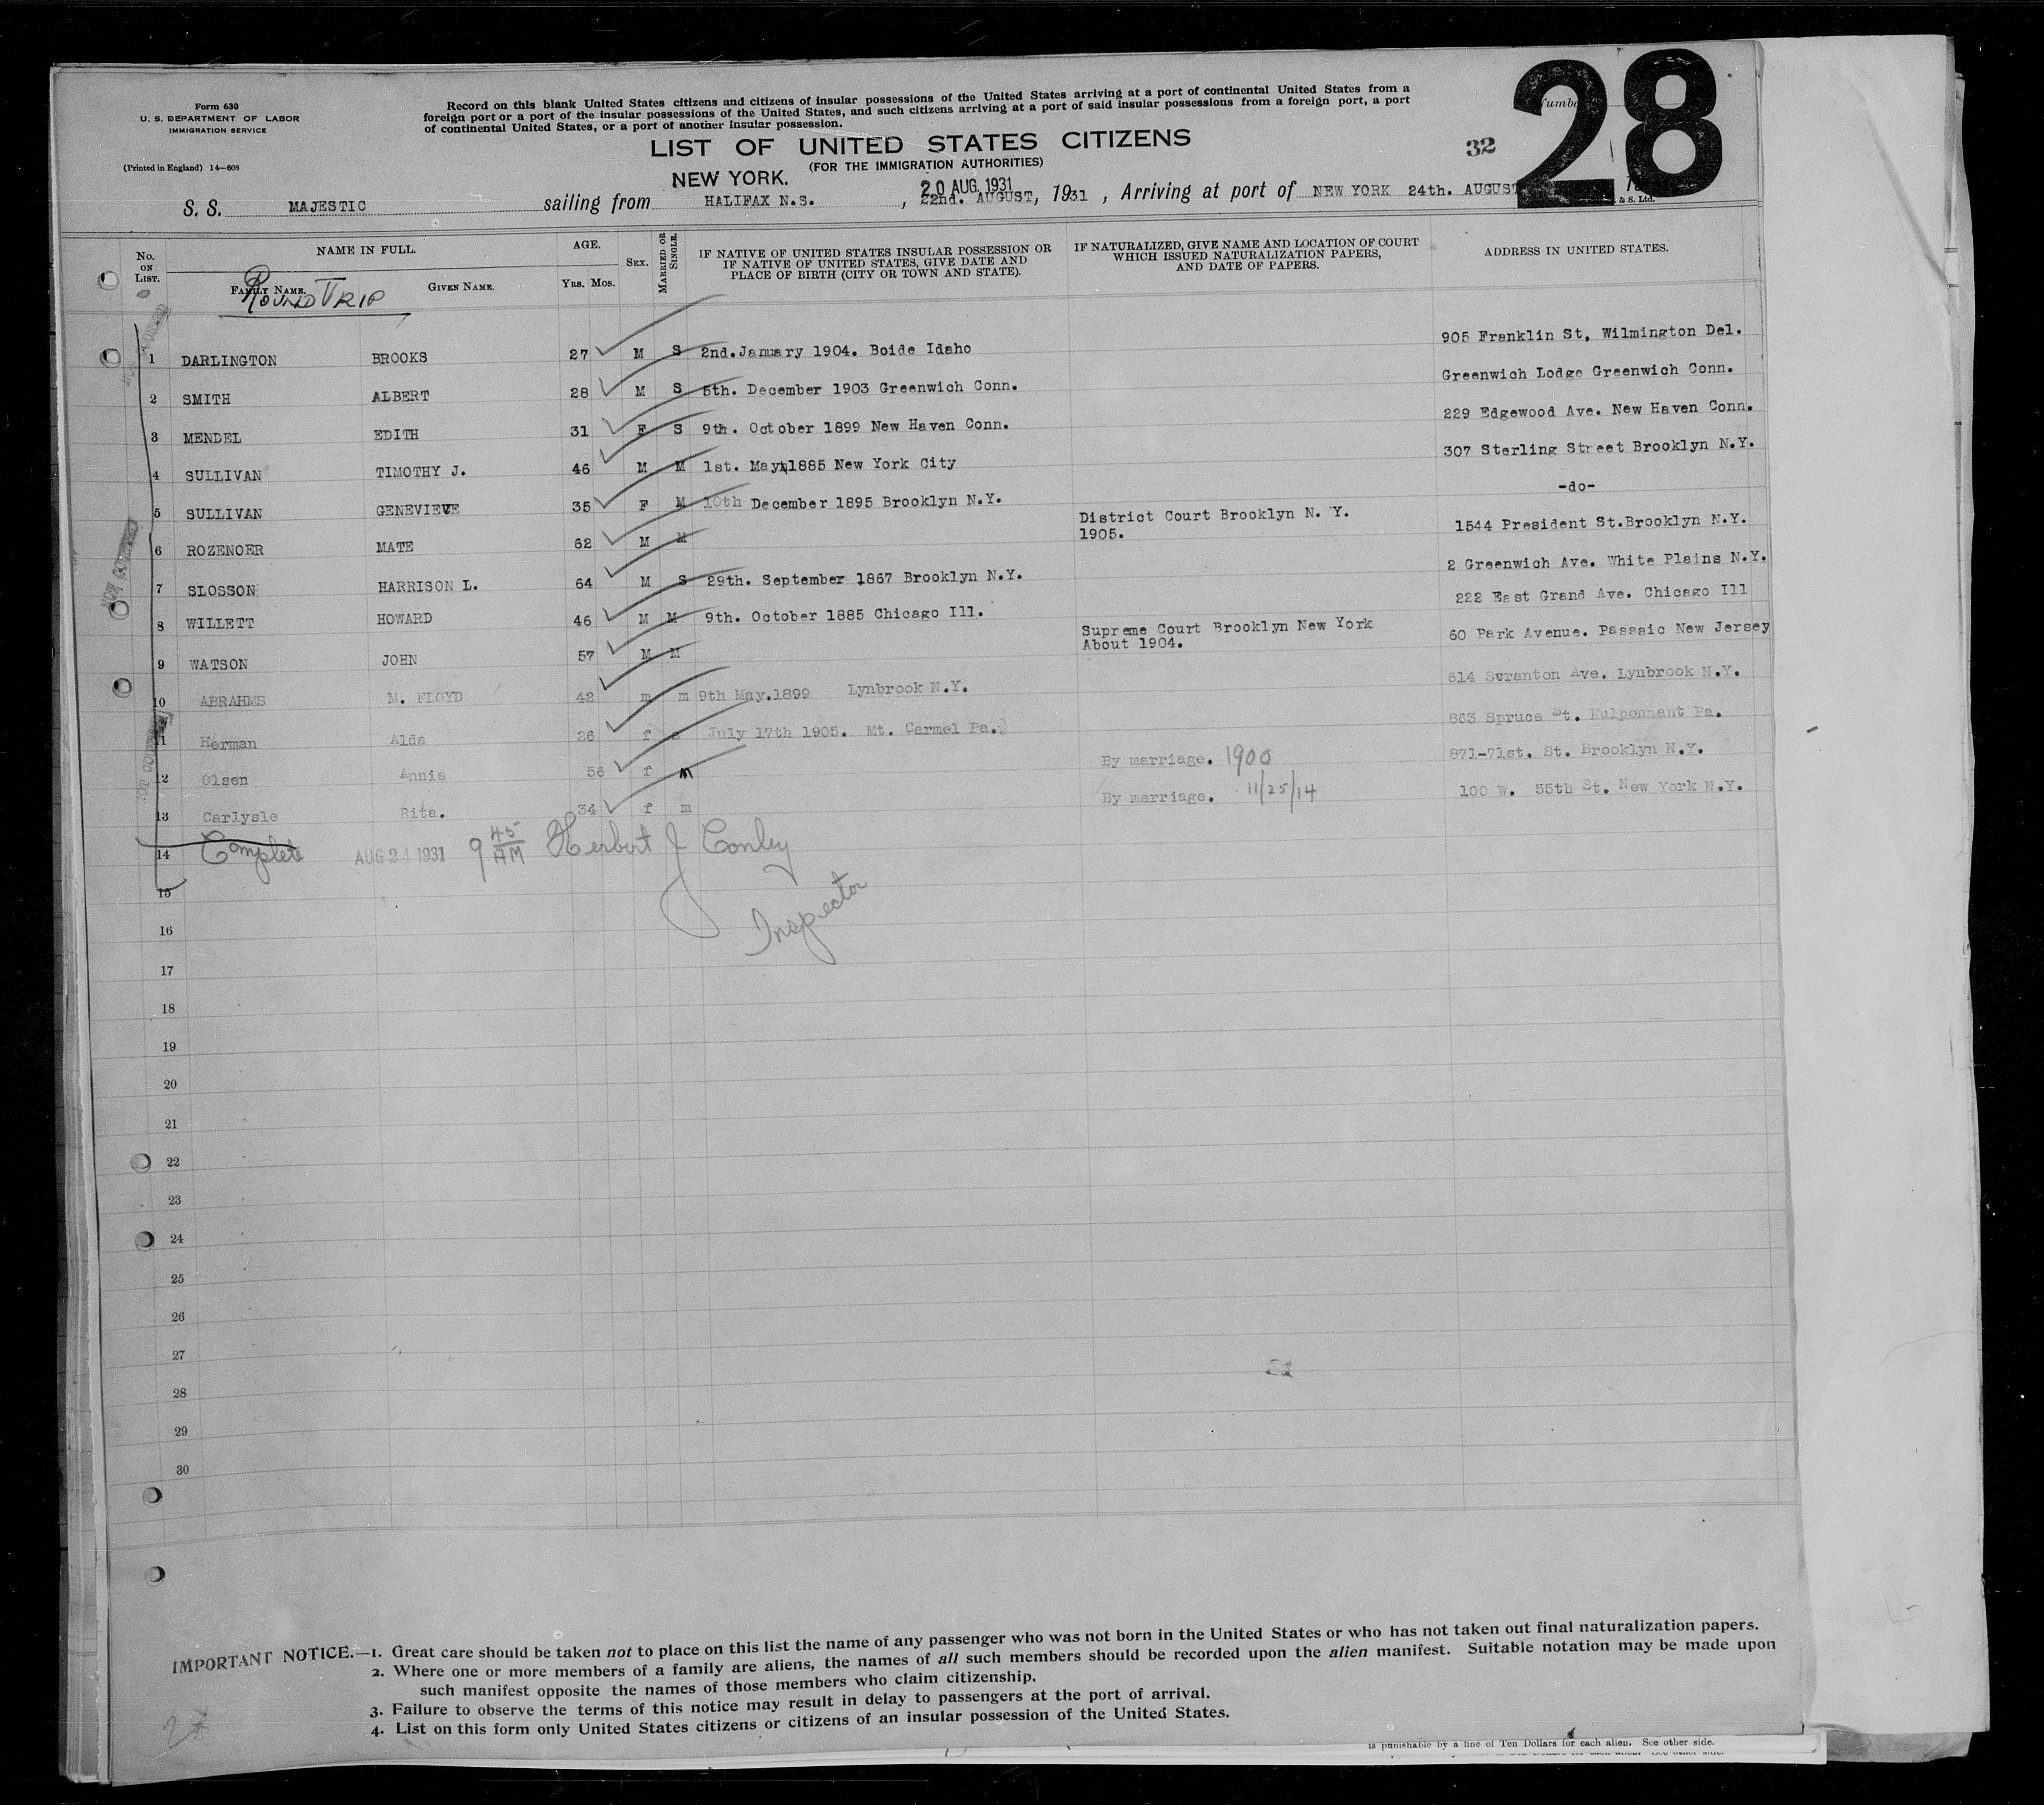 Form 630
U. S. DEPARTMENT OF LABOR
IMMIGRATION SERVICE
(Printed in England) 14—608
Record on this blank United States citizens and citizens of insular possessions of the United States arriving at a port of continental United States from a
foreign port or a port of the insular possessions of the United States, and such citizens arriving at a port of said insular possessions from a foreign port, a port
of continental United States, or a port of another insular possession.
28
32
LIST OF UNITED STATES CITIZENS
(FOR THE IMMIGRATION AUTHORITIES)
NEW YORK. 20 AUG. 1931
S. S. MAJESTIC sailing from HALIFAX N.S. , 22nd. AUGUST, 1931 , Arriving at port of NEW YORK 24th. AUGUST
& S. Ltd.
No. ON LIST. NAME IN FULL. AGE. SEX. MARRIED OR SINGLE. IF NATIVE OF UNITED STATES INSULAR POSSESSION OR IF NATIVE OF UNITED STATES, GIVE DATE AND PLACE OF BIRTH (CITY OR TOWN AND STATE). IF NATURALIZED, GIVE NAME AND LOCATION OF COURT WHICH ISSUED NATURALIZATION PAPERS, AND DATE OF PAPERS. ADDRESS IN UNITED STATES.
FAMILY NAME. GIVEN NAME. YRS. MOS.
ROUND TRIP
1 DARLINGTON BROOKS 27 M S 2nd. January 1904. Boide Idaho 905 Franklin St, Wilmington Del.
2 SMITH ALBERT 28 M S 5th. December 1903 Greenwich Conn. Greenwich Lodge Greenwich Conn.
3 MENDEL EDITH 31 F S 9th. October 1899 New Haven Conn. 229 Edgewood Ave. New Haven Conn.
4 SULLIVAN TIMOTHY J. 46 M M 1st. May 1885 New York City 307 Sterling Street Brooklyn N.Y.
5 SULLIVAN GENEVIEVE 35 F M 10th December 1895 Brooklyn N.Y. -do-
6 ROZENOER MATE 62 M M District Court Brooklyn N. Y. 1905. 1544 President St.Brooklyn N.Y.
7 SLOSSON HARRISON L. 64 M S 29th. September 1867 Brooklyn N.Y. 2 Greenwich Ave. White Plains N.Y.
8 WILLETT HOWARD 46 M M 9th. October 1885 Chicago Ill. 222 East Grand Ave. Chicago Ill
9 WATSON JOHN 57 M M Supreme Court Brooklyn New York About 1904. 60 Park Avenue. Passaic New Jersey
10 ABRAHMS M. FLOYD 42 m m 9th May.1899 Lynbrook N.Y. 614 Scranton Ave. Lynbrook N.Y.
11 Herman Alda 26 f s July 17th 1905. Mt. Carmel Pa. 863 Spruce St. Kulponnant Pa.
12 Olsen Annie 56 f m By marriage. 1900 871-71st. St. Brooklyn N.Y.
13 Carlysle Rita. 34 f m By marriage. 11/25/14 100 W. 55th St. New York N.Y.
14 Complete AUG 24 1931 9 45 AM Herbert J Conley
15
Inspector
16
17
18
19
20
21
22
23
24
25
26
27
28
29
30
IMPORTANT NOTICE.—1. Great care should be taken not to place on this list the name of any passenger who was not born in the United States or who has not taken out final naturalization papers.
2. Where one or more members of a family are aliens, the names of all such members should be recorded upon the alien manifest. Suitable notation may be made upon
such manifest opposite the names of those members who claim citizenship.
3. Failure to observe the terms of this notice may result in delay to passengers at the port of arrival.
4. List on this form only United States citizens or citizens of an insular possession of the United States.
is punishable by a fine of Ten Dollars for each alien. See other side.